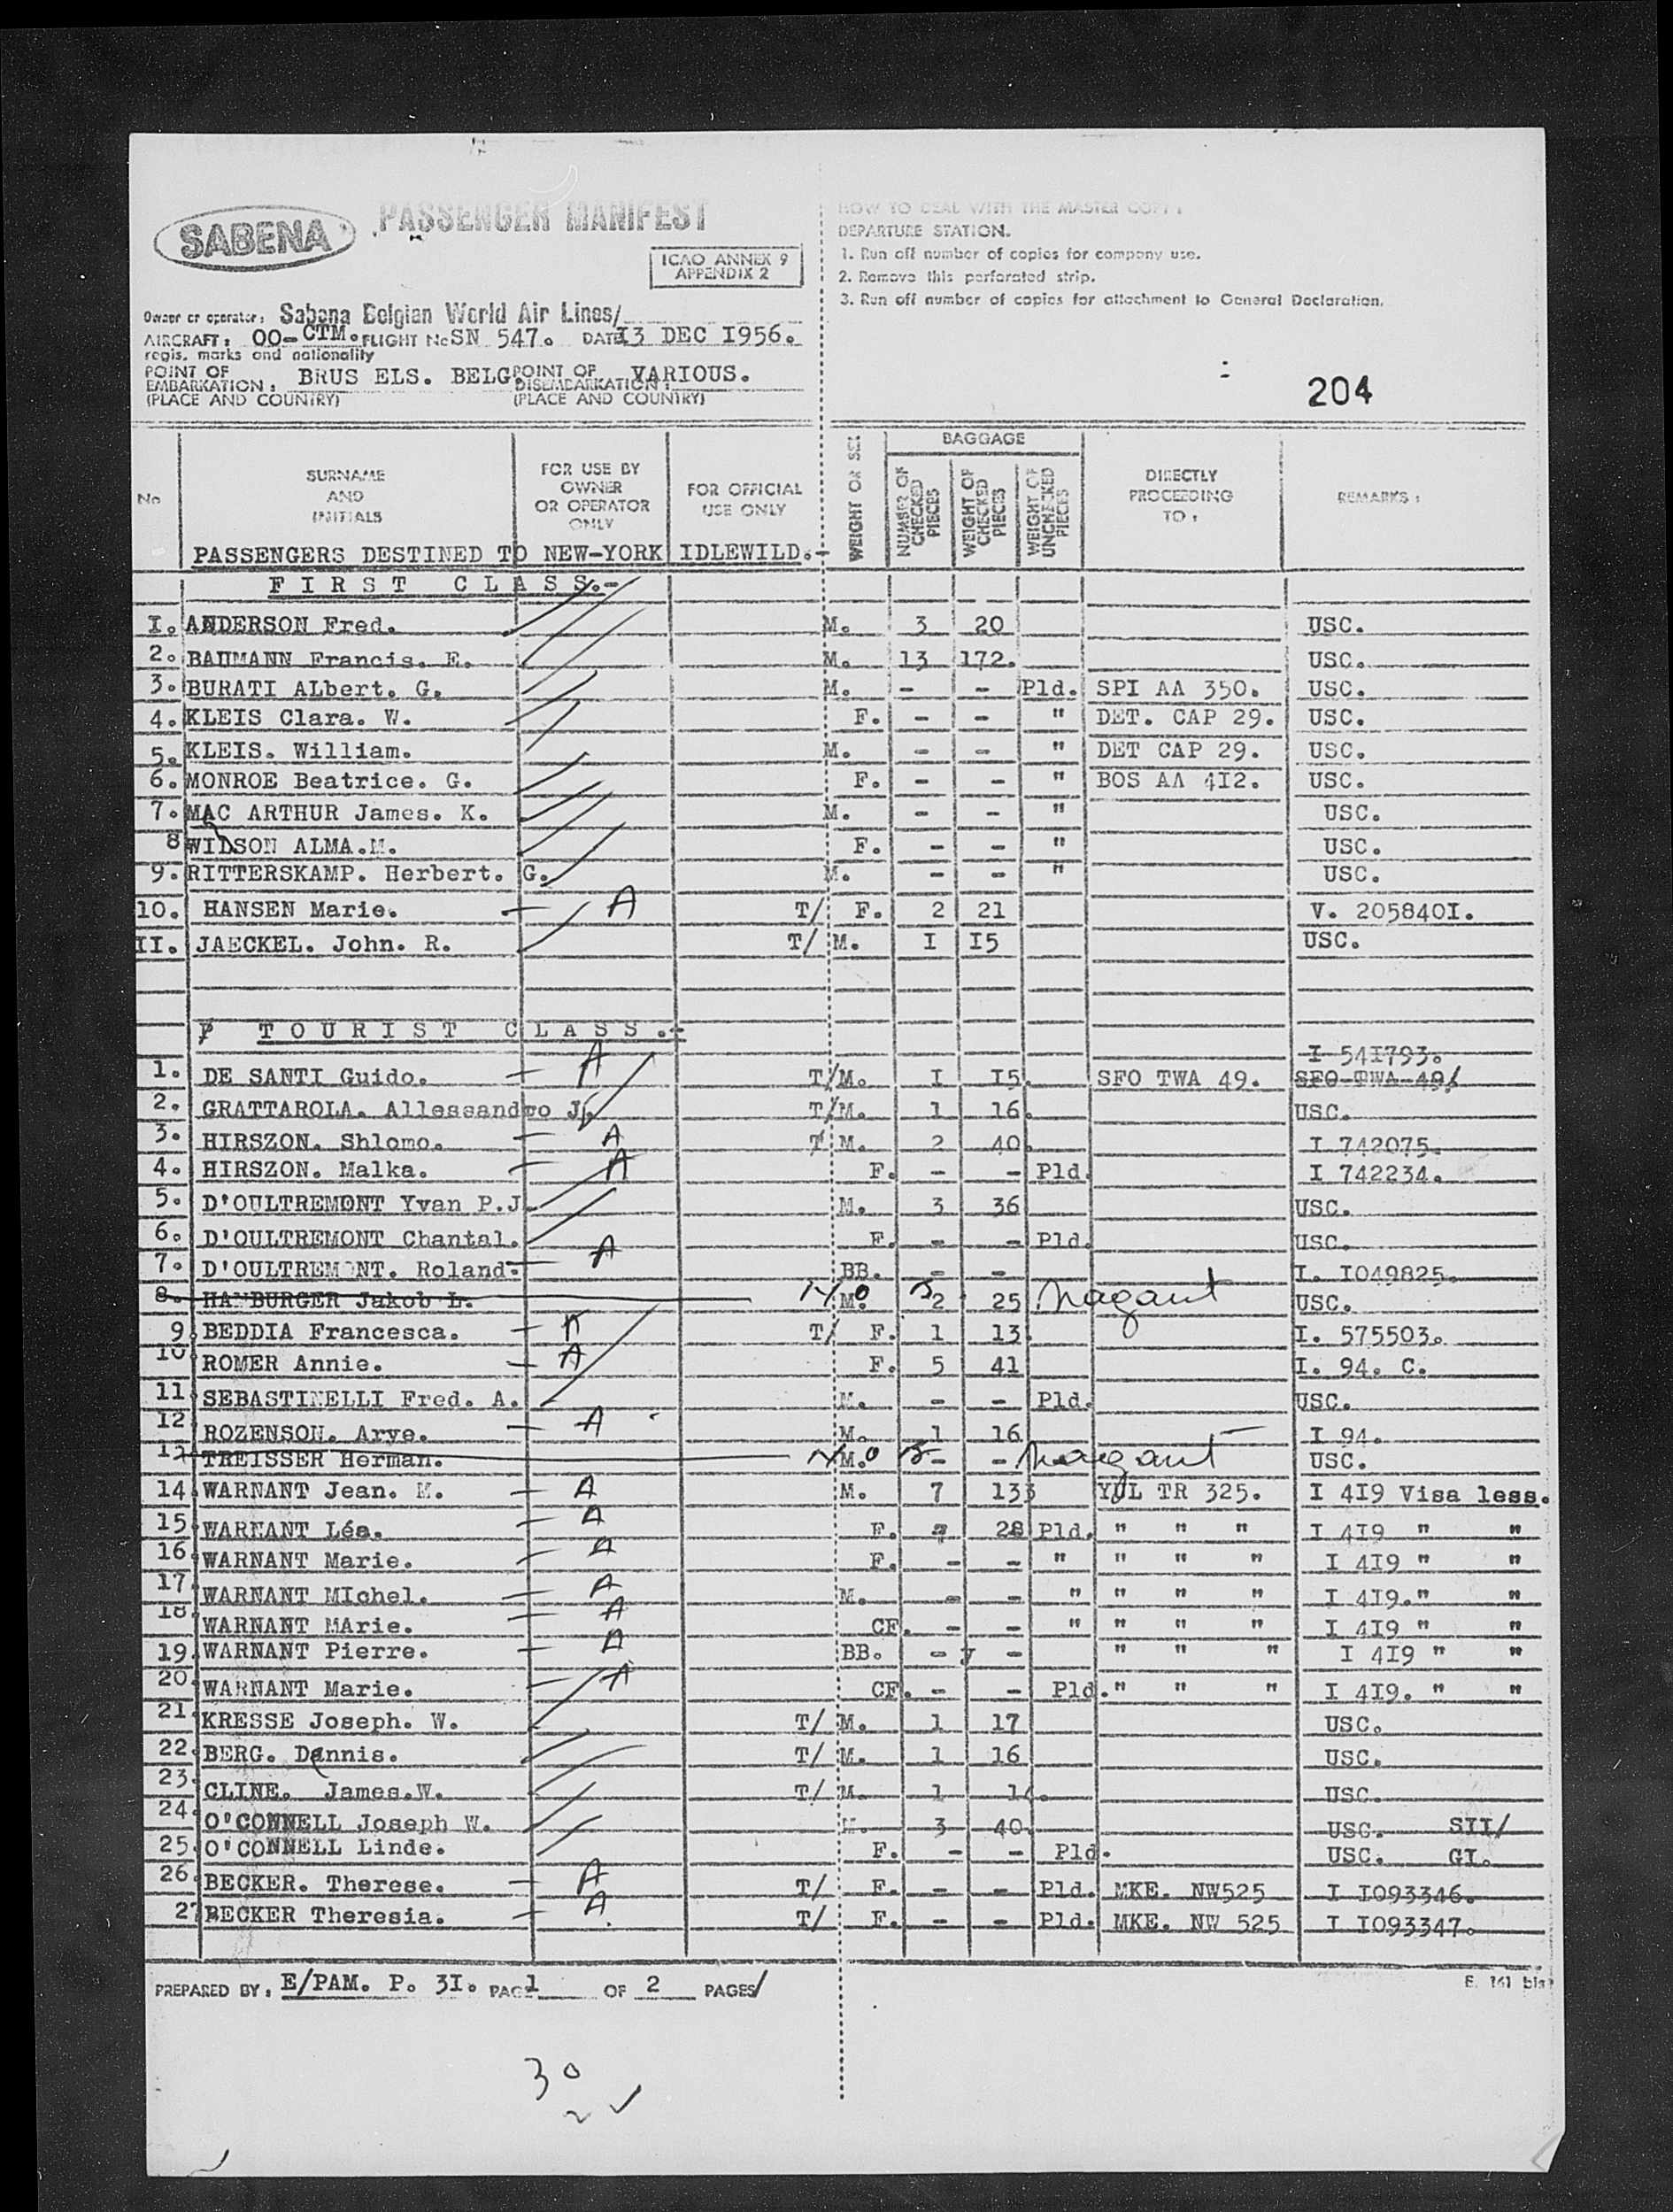 SABENA
PASSENGER MANIFEST
ICAO ANNEX 9
APPENDIX 2
HOW TO DEAL WITH THE MASTER COPY :
DEPARTURE STATION.
1. Run off number of copies for company use.
2. Remove this perforated strip.
3. Run off number of copies for attachment to General Declaration.
Owner or operator: Sabena Belgian World Air Lines/
AIRCRAFT: OO-CTM. FLIGHT No SN 547. DATE I3 DEC I956.
regis. marks and nationality
POINT OF EMBARKATION: BRUS ELS. BELG POINT OF DISEMBARKATION: VARIOUS.
(PLACE AND COUNTRY) (PLACE AND COUNTRY)
204
No SURNAME AND INITIALS FOR USE BY OWNER OR OPERATOR ONLY FOR OFFICIAL USE ONLY WEIGHT OR SEX BAGGAGE NUMBER OF CHECKED PIECES WEIGHT OF CHECKED PIECES WEIGHT OF UNCHECKED PIECES DIRECTLY PROCEEDING TO : REMARKS :
PASSENGERS DESTINED TO NEW-YORK IDLEWILD.-
F I R S T C L A S S.-
I. ANDERSON Fred. M. 3 20 USC.
2. BAUMANN Francis. E. M. 13 172. USC.
3. BURATI ALbert. G. M. - - Pld. SPI AA 350. USC.
4. KLEIS Clara. W. F. - - " DET. CAP 29. USC.
5. KLEIS. William. M. - - " DET CAP 29. USC.
6. MONROE Beatrice. G. F. - - " BOS AA 4I2. USC.
7. MAC ARTHUR James. K. M. - - " USC.
8 WILSON ALMA.M. F. - - " USC.
9. RITTERSKAMP. Herbert. G. M. - - " USC.
10. HANSEN Marie. - A T/ F. 2 21 V. 205840I.
II. JAECKEL. John. R. T/ M. I I5 USC.
T O U R I S T C L A S S .-
I 54I793.
1. DE SANTI Guido. - A T/M. I I5. SFO TWA 49. SFO TWA 49/
2. GRATTAROLA. Allessandro J. T/M. 1 16. USC.
3. HIRSZON. Shlomo. - A T M. 2 40. I 742075.
4. HIRSZON. Malka. - A F. - - Pld. I 742234.
5. D'OULTREMONT Yvan P.J. M. 3 36 USC.
6. D'OULTREMONT Chantal. F. - - Pld. USC.
7. D'OULTREMONT. Roland. - A BB. - - I. I049825.
8. HAMBURGER Jakob L. N.O B M. 2 25 USC.
9. BEDDIA Francesca. - A T/ F. 1 13. I. 575503.
10 ROMER Annie. - A F. 5 41 I. 94. C.
11. SEBASTINELLI Fred. A. M. - - Pld. USC.
12 ROZENSON. Arye. - A M. 1 16 I 94.
13 TREISSER Herman. N O B M. - - USC.
14. WARNANT Jean. M. - A M. 7 133 YUL TR 325. I 4I9 Visa less.
15. WARNANT Léa. - A F. 28 Pld. " " " I 4I9 " "
16. WARNANT Marie. - A F. - - " " " " I 4I9 " "
17. WARNANT MIchel. - A M. - - " " " " I 4I9." "
18. WARNANT MArie. - A CF. - - " " " " I 4I9 " "
19. WARNANT Pierre. - A BB. - - " " " I 4I9 " "
20. WARNANT Marie. - A CF. - - Pld. " " " I 4I9. " "
21. KRESSE Joseph. W. T/ M. 1 17 USC.
22. BERG. Dennis. T/ M. 1 16 USC.
23. CLINE. James.W. T/ M. 1 USC.
24. O'CONNELL Joseph W. M. 3 40. USC. SII/
25. O'CONNELL Linde. F. - - Pld. USC. GI.
26. BECKER. Therese. - A T/ F. - - Pld. MKE. NW525 I I093346.
27 BECKER Theresia. - A T/ F. - - Pld. MKE. NW 525 I I093347.
PREPARED BY : E/PAM. P. 3I. PAGE 1 OF 2 PAGES/
E. 161 bis
30
2